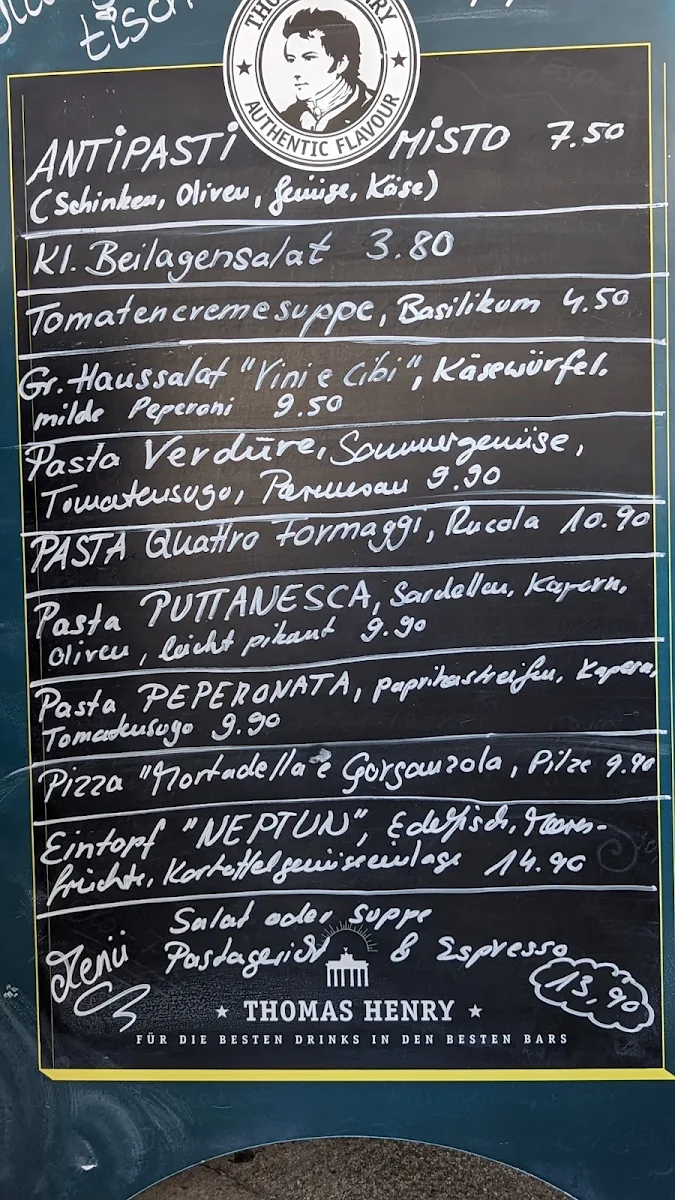 tisch
THOMAS HENRY
AUTHENTIC FLAVOUR
ANTIPASTI MISTO 7.50
(Schinken, Oliven, Gemüse, Käse)
Kl. Beilagensalat 3.80
Tomatencremesuppe, Basilikum 4.50
Gr. Haussalat "Vini e Cibi", Käsewürfel,
milde Peperoni 9.50
Pasta Verdūre, Sommergemüse,
Tomatensugo, Parmesan 9.90
PASTA Quattro Formaggi, Rucola 10.90
Pasta PUTTANESCA, Sardellen, Kapern,
Oliven, leicht pikant 9.90
Pasta PEPERONATA, Paprikastreifen, Kapern,
Tomatensugo 9.90
Pizza "Mortadella e Gorgonzola, Pilze 9.90
Eintopf "NEPTUN", Edelfisch, Meeres-
früchte, Kartoffelgemüseeinlage 14.90
Salat oder Suppe
Menü Pastagericht & Espresso
13,90
THOMAS HENRY
FÜR DIE BESTEN DRINKS IN DEN BESTEN BARS